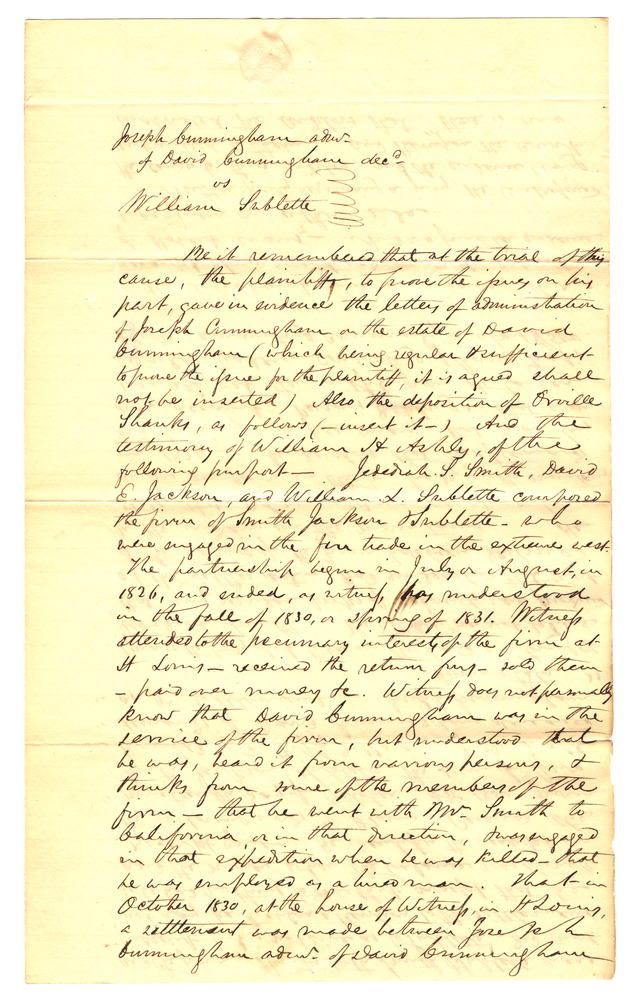 Joseph Cunningham admr.
of David Cunningham decd.
vs
William Sublette
Be it remembered that at the trial of this
cause, the plaintiff, to prove the issues on his
part, gave in evidence the letters of administration
of Joseph Cunningham on the estate of David
Cunningham (which being regular & sufficient
to prove the issue for the plaintiff it is agreed shall
not be inserted) Also the deposition of Orville
Shanks, as follows (-insert it-) And the
testimony of William H Ashley, of the
following purport — Jedediah. S. Smith, David
E. Jackson, and William. L. Sublette composed
the firm of Smith Jackson & Sublette - who
were engaged in the fur trade in the extreme west.
The partnership began in July or August, in
1826, and ended, as witness has understood
in the fall of 1830, or spring of 1831. Witness
attended to the pecuniary interests of the firm at
St Louis — received the return furs - sold them
- paid over money &c. Witness does not personally
know that David Cunningham was in the
service of the firm, but understood that
he was, heard it from various persons, &
thinks from some of the members of the
firm — that he went with Mr. Smith to
California, or in that direction, & was engaged
in that expedition when he was killed - that
he was employed as a hired man. That in
October 1830, at the house of Witness, in St Louis,
a settlement was made between Joseph
Cunningham admr. of David Cunningham